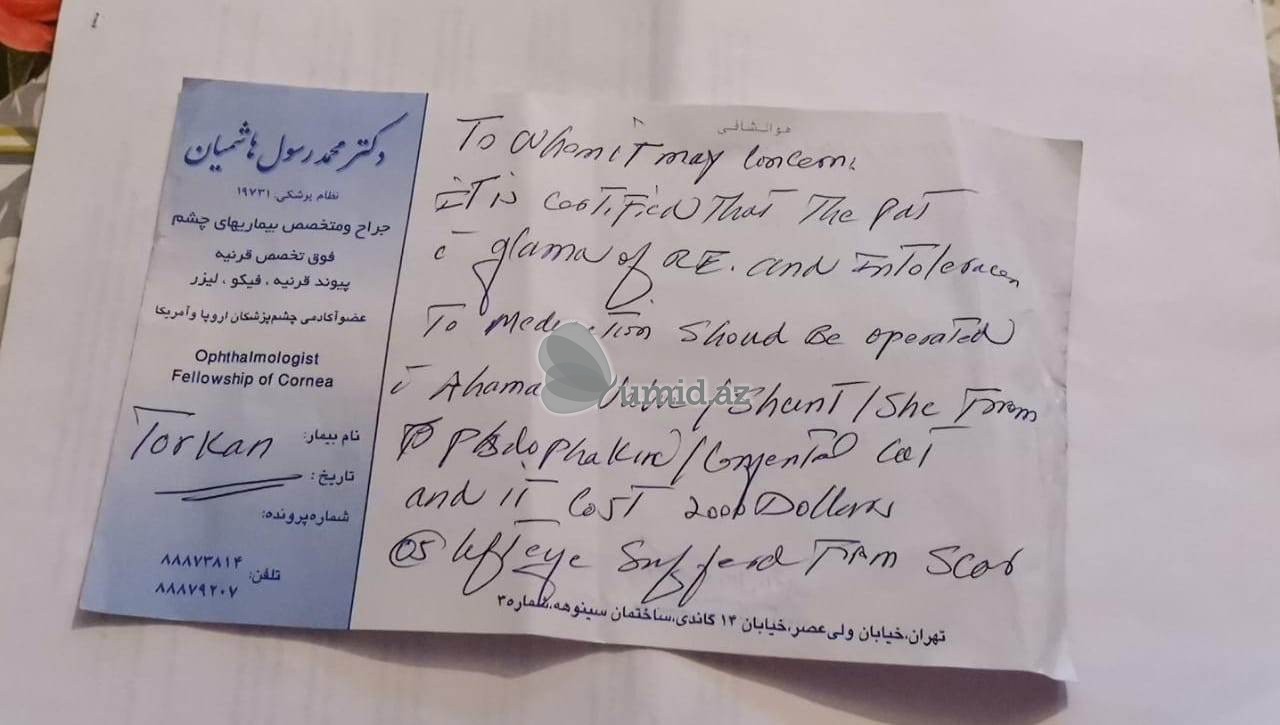 دکتر محمد رسول هاشمیان
نظام پزشکی: ۱۹۷۳۱
جراح ومتخصص بیماریهای چشم
فوق تخصص قرنیه
پیوند قرنیه ، فیکو ، لیزر
عضو آکادمی چشم‌پزشکان اروپا و آمریکا
Ophthalmologist
Fellowship of Cornea
نام بیمار: Torkan
تاریخ:
شماره پرونده:
تلفن: ۸۸۸۷۳۸۱۴
۸۸۸۷۹۲۰۷
هوالشافی
To Whom it may Concern:
it is certified That The pat
of RE. and intoleracen
To Should Be operated
Ahama / Shunt / She From
/ Congenital Cat
and it Cost 2000 Dollars
OS left eye Sufferd From Scar
تهران،خیابان ولی‌عصر،خیابان ۱۴ گاندی،ساختمان سینوهه،شماره۳
umid.az